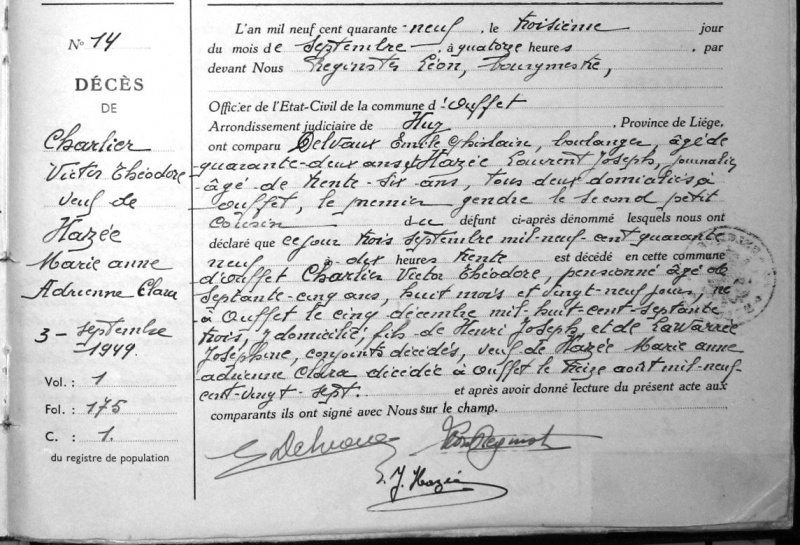 N° 14
DÉCÈS
DE
Charlier
Victor Théodore
veuf de
Hazée
Marie Anne
Adrienne Clara
3 - septembre
- 1949.
Vol. : 1
Fol. : 175
C. : 1.
du registre de population
L'an mil neuf cent quarante-neuf, le troisième jour
du mois de septembre, à quatorze heures, par
devant Nous Reginster Léon, bourgmestre,
Officier de l'Etat-Civil de la commune d'Ouffet
Arrondissement judiciaire de Huy, Province de Liége.
ont comparu Delvaux Emile Ghislain, boulanger, âgé de
quarante-deux ans, et Hazée Laurent Joseph, journalier
âgé de trente-six ans, tous deux domiciliés à
Ouffet, le premier gendre le second petit
cousin du défunt ci-après dénommé lesquels nous ont
déclaré que ce jour trois septembre mil-neuf-cent quarante
neuf à dix heures trente est décédé en cette commune
d'Ouffet Charlier Victor Théodore, pensionné âgé de
septante-cinq ans, huit mois et vingt-neuf jours, né
à Ouffet le cinq décembre mil-huit-cent-septante
trois, y domicilié, fils de Henri Joseph et de Lawarrée
Joséphine, conjoints décédés, veuf de Hazée Marie Anne
Adrienne Clara décédée à Ouffet le treize août mil-neuf
cent-vingt-sept. et après avoir donné lecture du présent acte aux
comparants ils ont signé avec Nous sur le champ.
E Delvaux
Léon Reginster
L. J. Hazée